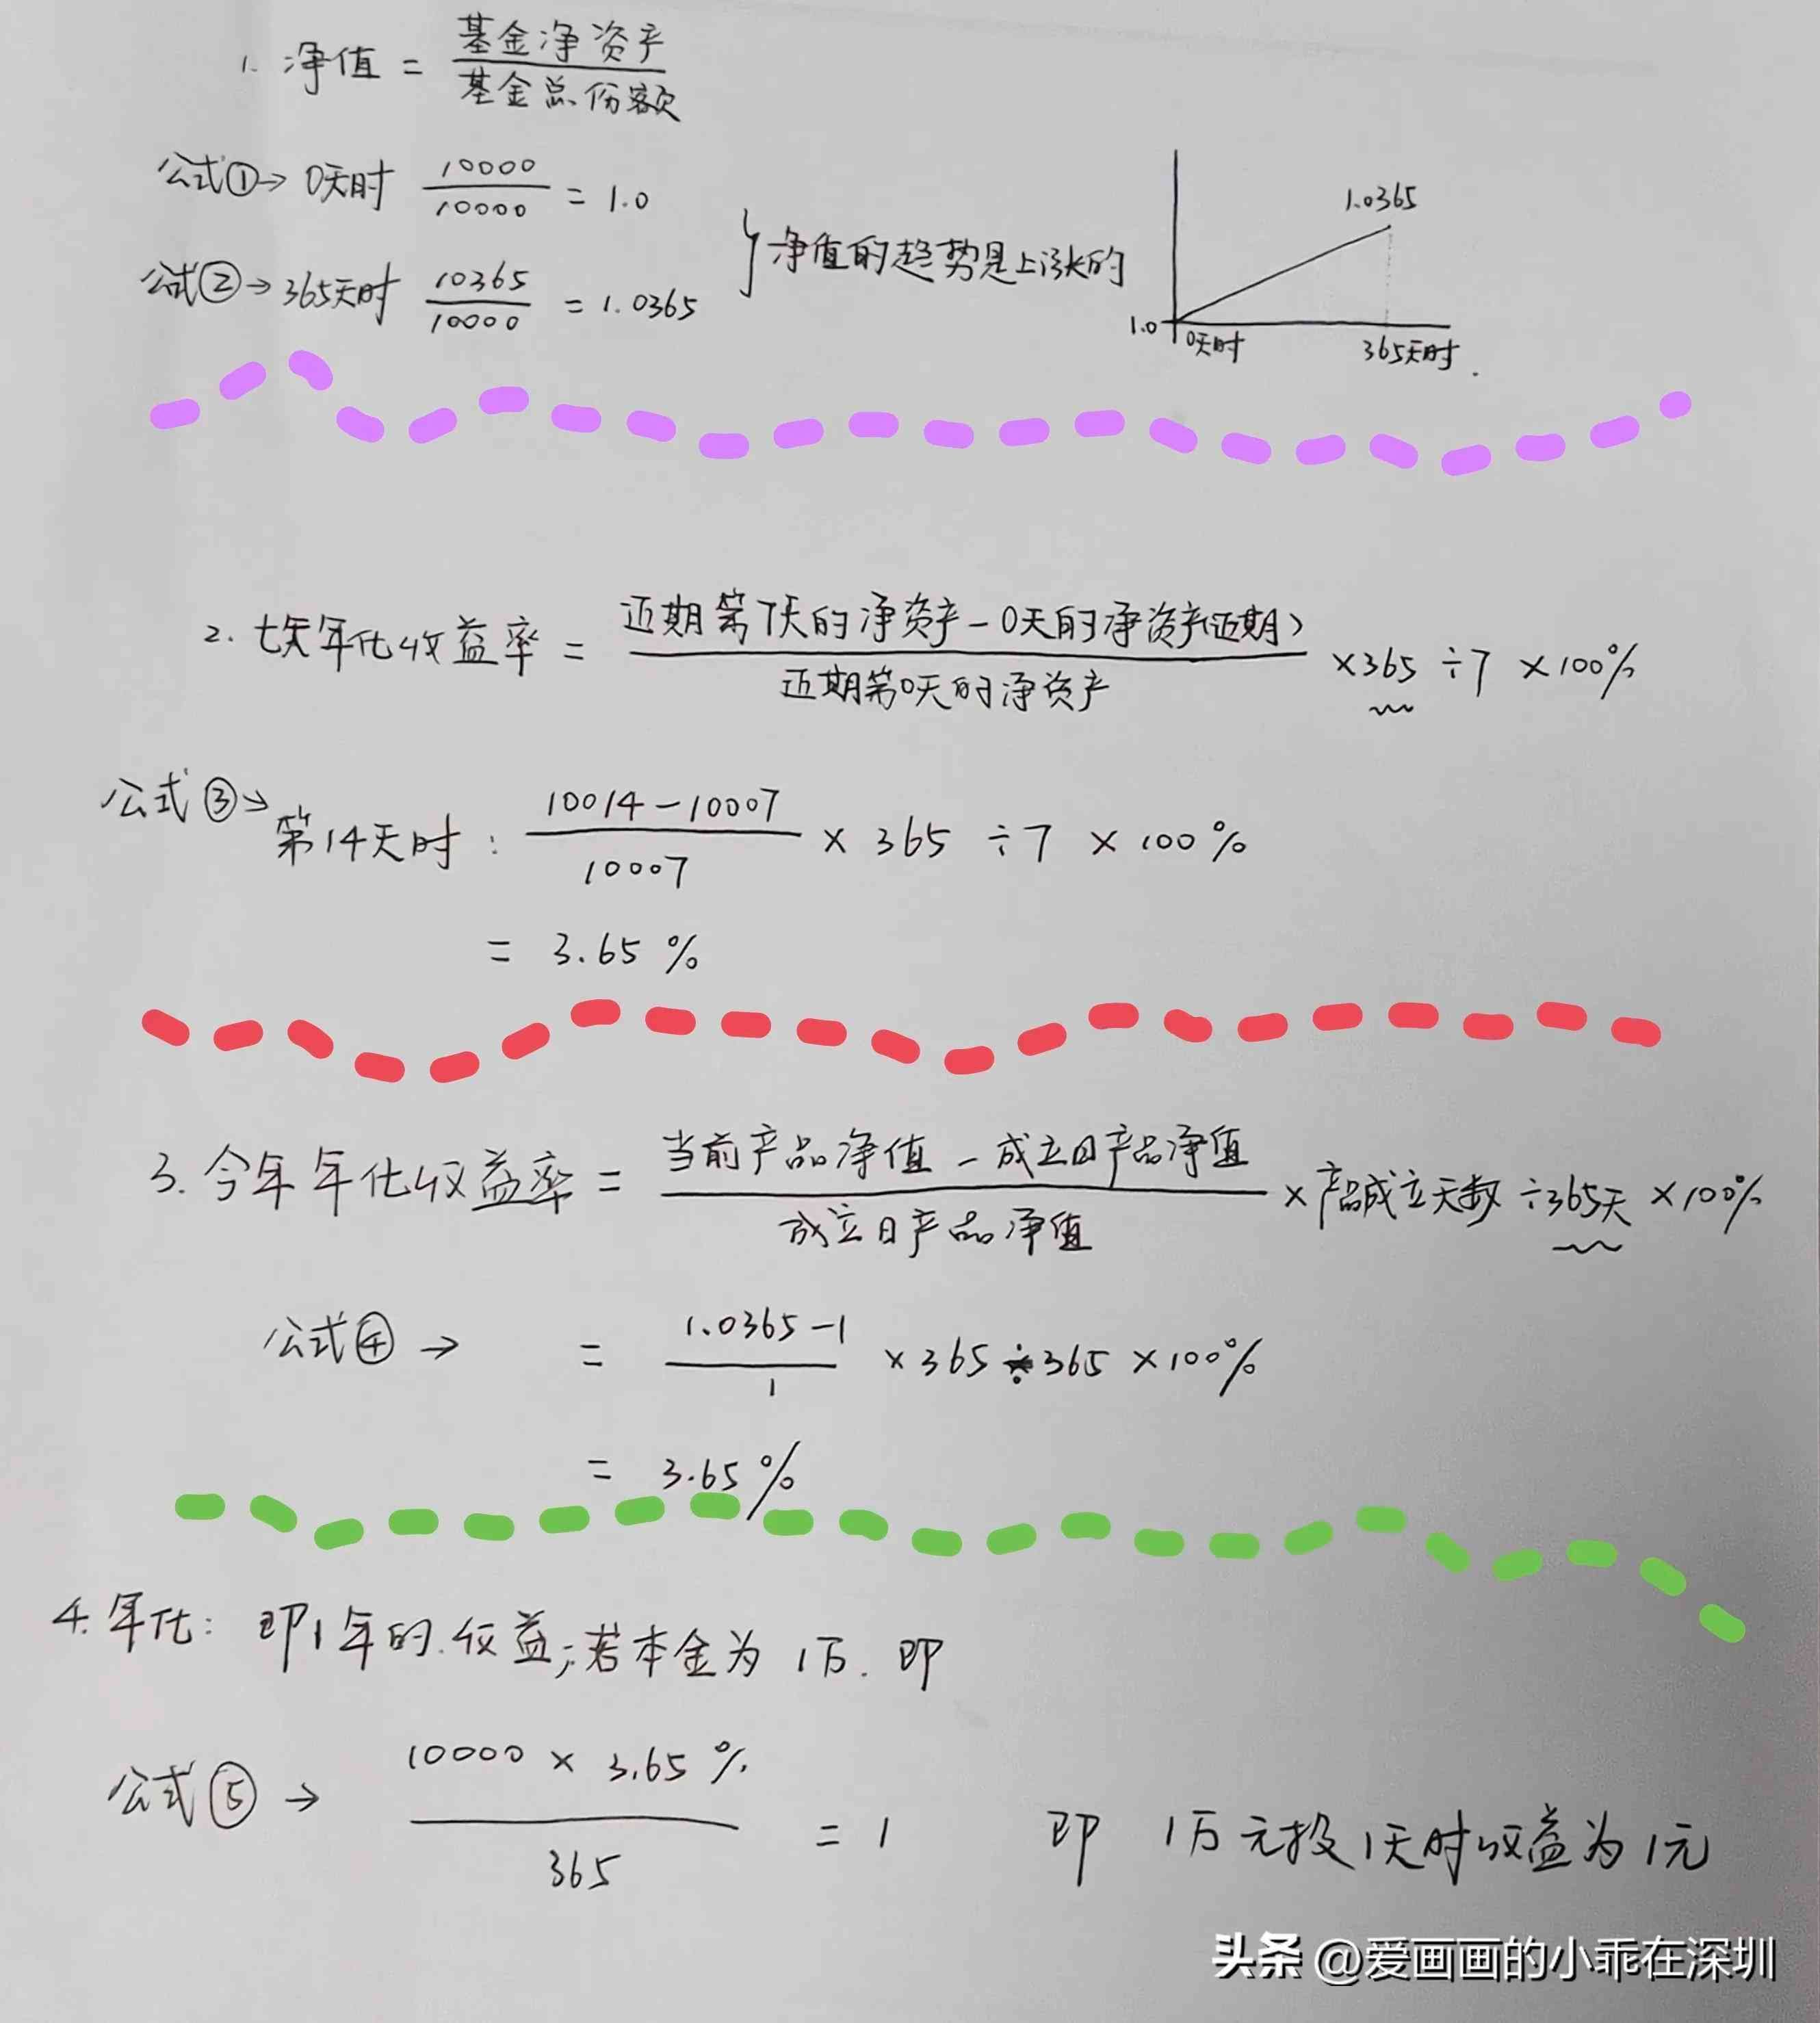 1. 净值 = 基金净资产
基金总份额
公式①→ 0天时 10000/10000 = 1.0
公式②→ 365天时 10365/10000 = 1.0365
} 净值的趋势是上涨的
1.0365
1.0
0天时
365天时.
2. 七天年化收益率 = 近期第7天的净资产-0天的净资产(近期)
近期第0天的净资产
×365 ÷7 ×100%
公式③→
第14天时: 10014-10007
10007
× 365 ÷7 × 100%
= 3.65 %
3. 今年年化收益率 = 当前产品净值 - 成立日产品净值
成立日产品净值
×产品成立天数 ÷365天 ×100%
公式④ → = 1.0365-1
1
×365÷365 ×100%
= 3.65%
4. 年化: 即1年的.收益;若本金为 1万. 即
公式⑤ → 10000 × 3.65 %
365
= 1 即 1万元投1天时收益为1元
头条 @爱画画的小乖在深圳